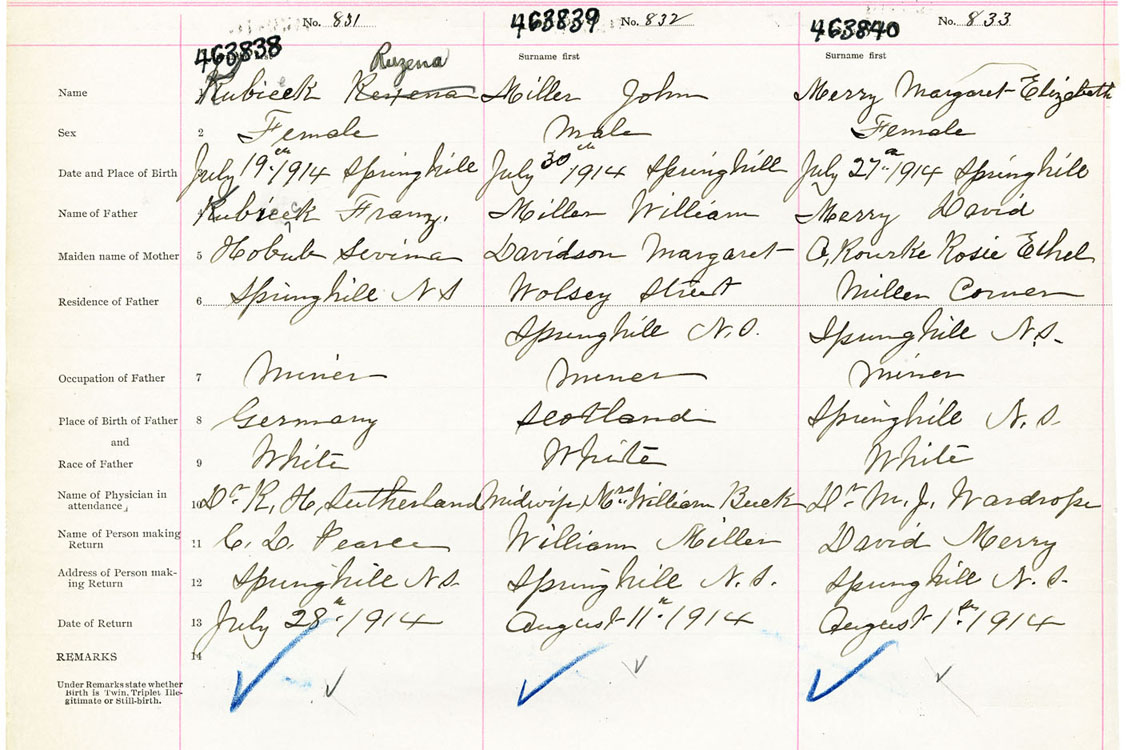 No. 831 463839 No. 832 463840 No. 833
463838 Surname first Surname first
Ruzena
Name 1 Kubicek Rexena Miller John Merry Margaret Elizabeth
Sex 2 Female Male Female
Date and Place of Birth July 19th 1914 Springhill July 30th 1914 Springhill July 27th 1914 Springhill
Name of Father 4 Kubicek Franz. Miller William Merry David
Maiden name of Mother 5 Hobub Sevima Davidson Margaret O,Rourke Rosie Ethel
Residence of Father 6 Springhill N S Wolsey Street Miller Corner
Springhill N.S. Springhill N.S.
Occupation of Father 7 Miner Miner Miner
Place of Birth of Father 8 Germany Scotland Springhill N.S.
and
Race of Father 9 White White White
Name of Physician in attendance, 10 Dr R. H. Sutherland Midwife, Mrs William Buck Dr M. J. Wardrope
Name of Person making Return 11 C. L. Pearce William Miller David Merry
Address of Person making Return 12 Springhill N.S. Springhill N.S. Springhill N.S.
Date of Return 13 July 28th 1914 August 11th 1914 August 1st 1914
REMARKS 14
Under Remarks state whether
Birth is Twin, Triplet Ille-
gitimate or Still-birth.